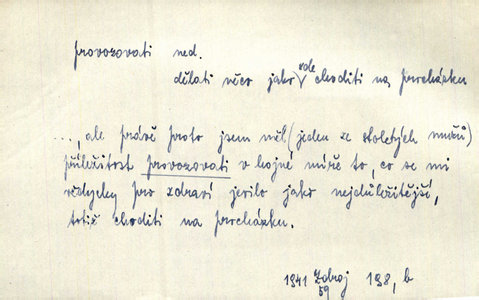 provozovati ned.
zde
dělati něco jako choditi na procházku
..., ale právě proto jsem měl (jeden ze stoletých mužů)
příležitost provozovati v hojné míře to, co se mi
vždycky pro zdraví jevilo jako nejdůležitější,
totiž choditi na procházku.
1941 Zdroj 198, b
59